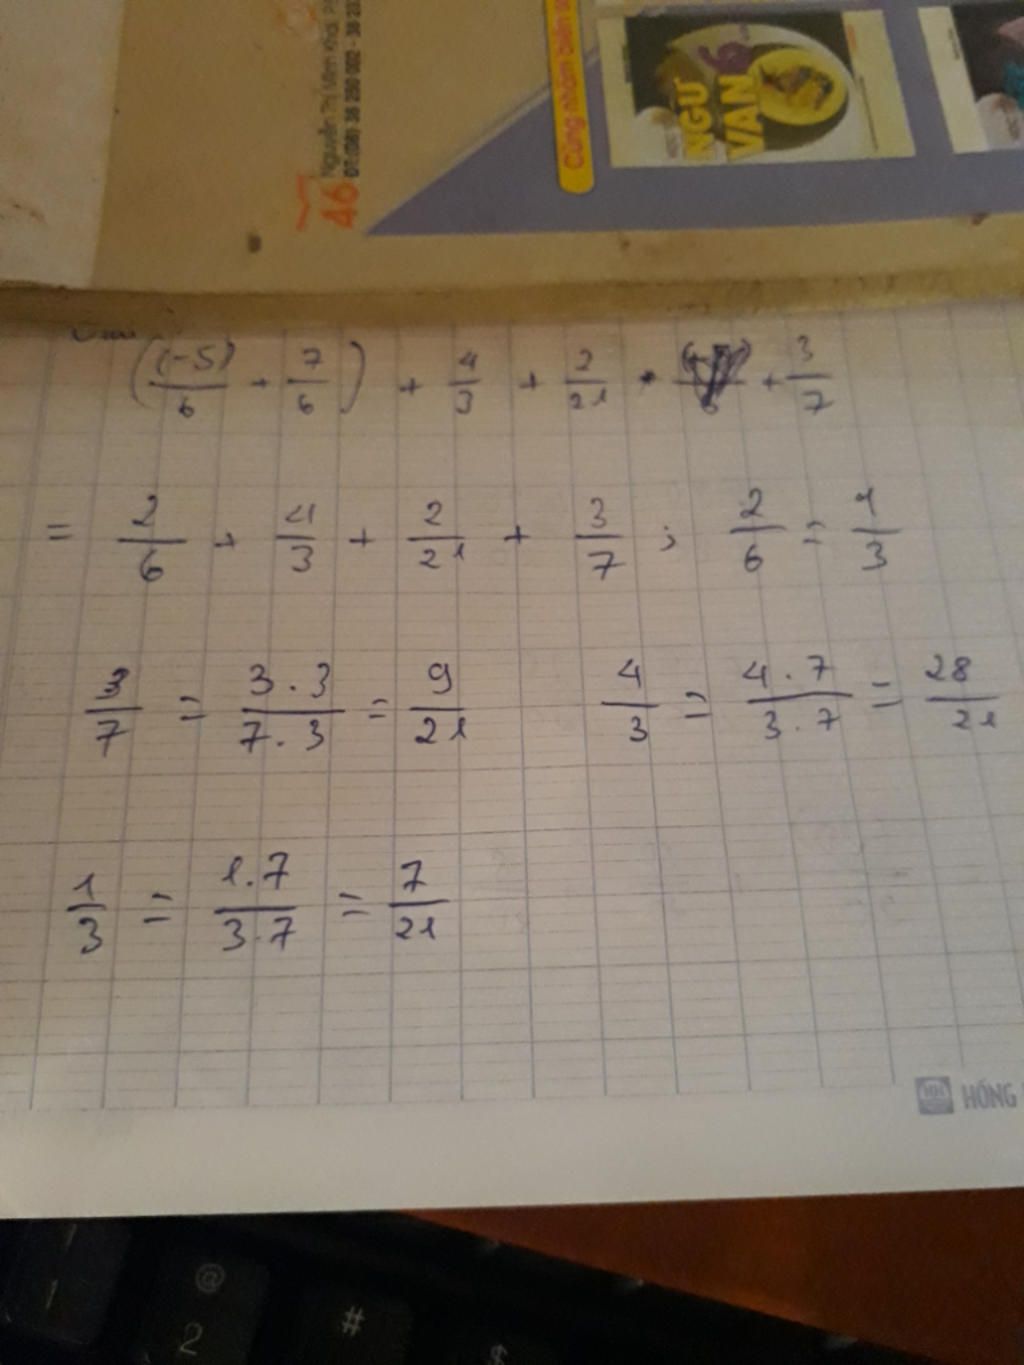 46
Nguyễn Thị Minh Khai, P.
ĐT: (08) 38 290 002 - 38 23
Cùng nhóm biên so
NGỮ
VĂN
6
((-5)/6 + 7/6) + 4/3 + 2/21 + 3/7
= 2/6 + 4/3 + 2/21 + 3/7 ; 2/6 = 1/3
3/7 = 3.3/7.3 = 9/21 4/3 = 4.7/3.7 = 28/21
1/3 = 1.7/3.7 = 7/21
HH HỒNG
1
@
2
#